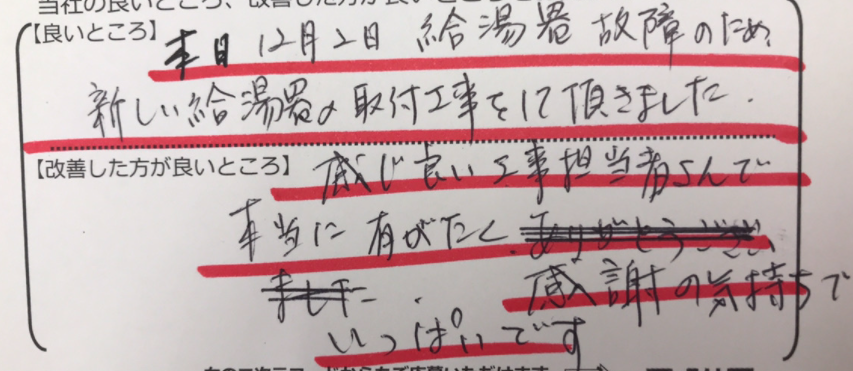 当社の良いところ、改善した方が良いところ
【良いところ】 本日 12月2日 給湯器 故障のため
新しい給湯器の取付工事をして頂きました.
【改善した方が良いところ】 感じ良い工事担当者さんで
本当に 有がたく. ありがとうござい
ました. 感謝の気持ちで
いっぱいです